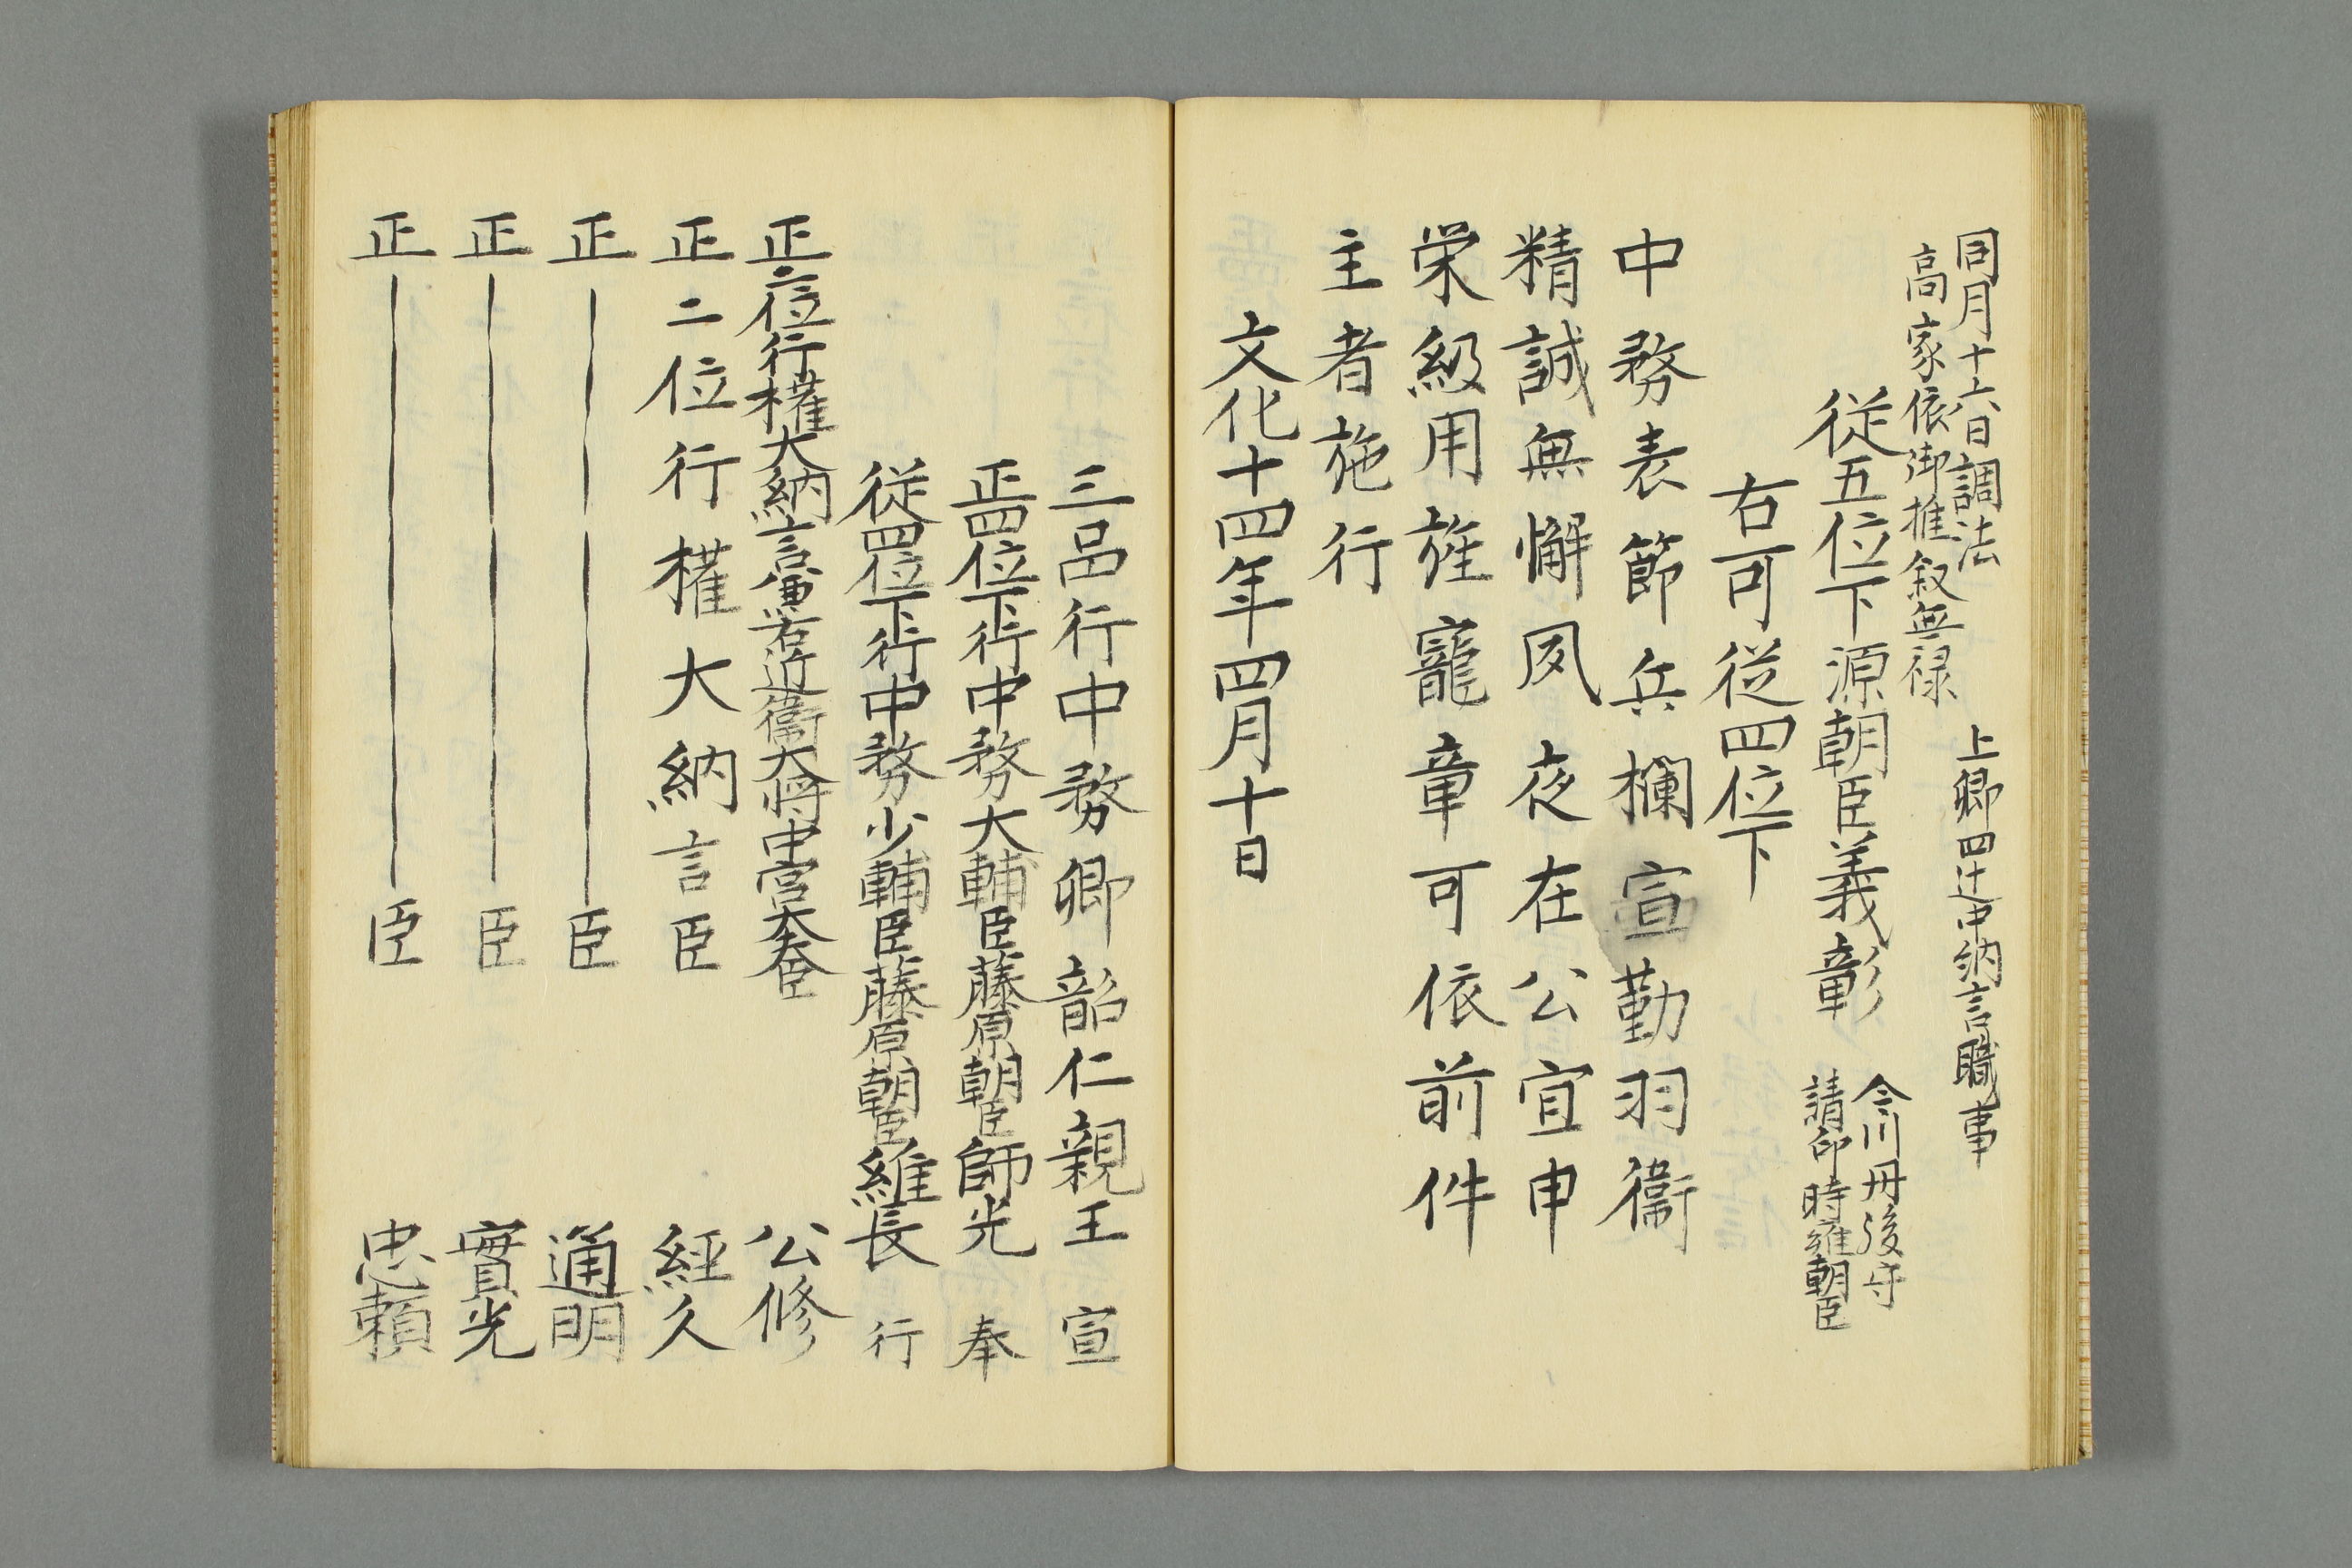 同月十六日調法　上卿四辻中納言職事
高家依御推叙無禄
従五位下源朝臣義彰　今川丹後守
請印時雍朝臣
右可従四位下
中務表節兵欄宣勤羽衛
精誠無懈夙夜在公宜申
栄級用旌寵章可依前件
主者施行
文化十四年四月十日
三品行中務卿韶仁親王　宣
正四位下行中務大輔臣藤原朝臣師光　奉
従四位下行中務少輔臣藤原朝臣維長　行
正二位行権大納言兼右近衛大将中宮大夫臣　公修
正二位行権大納言臣　経久
正――――臣　通明
正――――臣　實光
正――――臣　忠頼